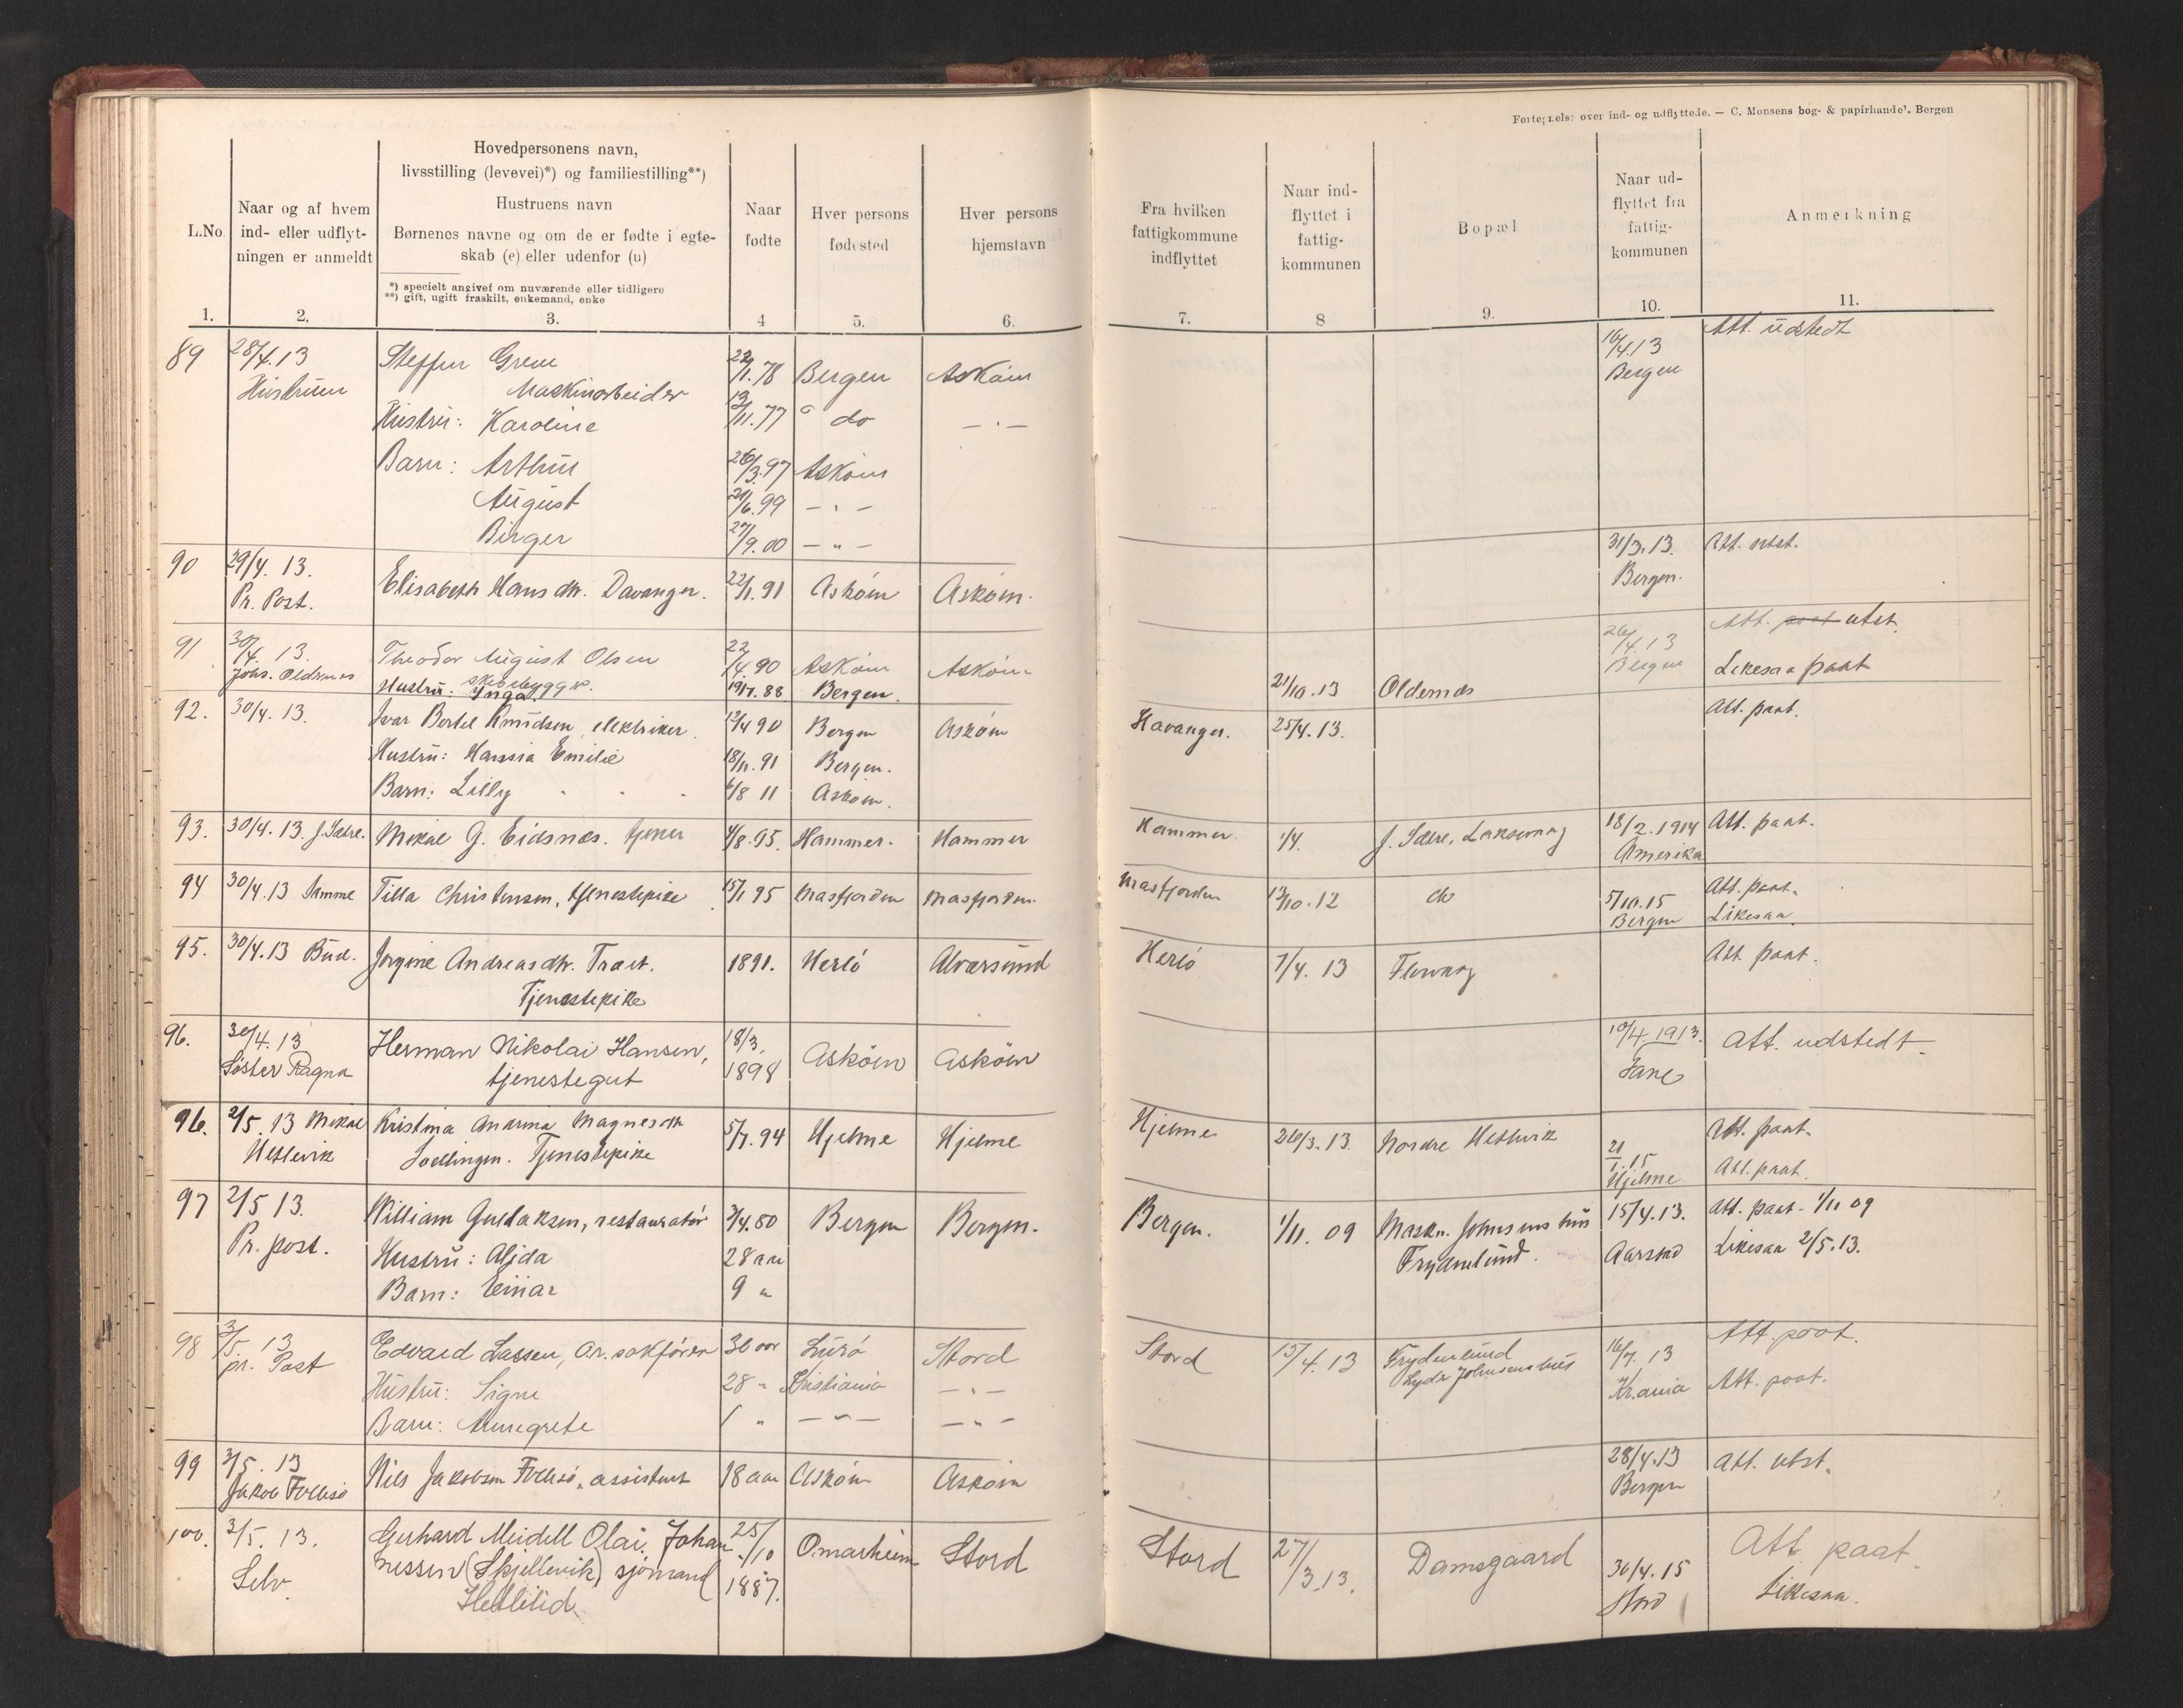 Fortegnelse over ind- og udflyttede. — C. Monsens bog- & papirhandel. Bergen
L.No.
Naar og af hvem
ind- eller udflyt-
ningen er anmeldt
Hovedpersonens navn,
livsstilling (levevei)*) og familiestilling**)
Hustruens navn
Børnenes navne og om de er fødte i egte-
skab (e) eller udenfor (u)
*) specielt angivet om nuværende eller tidligere
**) gift, ugift fraskilt, enkemand, enke
Naar
fødte
Hver persons
fødested
Hver persons
hjemstavn
Fra hvilken
fattigkommune
indflyttet
Naar ind-
flyttet i
fattig-
kommunen
Bopæl
Naar ud-
flyttet fra
fattig-
kommunen
Anmerkning
1. 2. 3. 4 5. 6. 7. 8 9. 10. 11.
89 28/4.13 Steffen 22/1.78 Bergen Askøen 16/4.13 Att. udstedt
Hustruen Maskinarbeider Bergen
Hustru: Karoline 12/11.77 do — . —
Barn: Arthur 26/3.97 Askøen
August 21/6.99 — . —
Birger 27/9.00 — " —
90 29/4. 13. Elisabeth Hansdtr. Davanger. 22/1.91 Askøen Askøen. 31/3.13. Att. utst.
Pr. Post. Bergen.
91 30/4. 13. Theodor August Olsen 22/4.90 Askøen Askøen 26/4.13 Att. paat utst.
Johs. Oldernes skibsbygger. Bergen
Hustru: Ynga. 19/7.88 Bergen. 21/10.13 Oldernes Likesaa paat
92. 30/4.13. Ivar Bertel Knudsen, elektriker. 12/4 90 Bergen Askøen Havanger. 25/4.13. Att. paat.
Hustru: Hansia Emilie 18/11.91 Bergen.
Barn: Lilly 6/8 11 Askøen.
93. 30/4.13. J. Sætre. Mikal G. Eidsnes. tjener 4/8.95. Hammer. Hammer Hammer. 1/4. J. Sætre, Laksevaag 18/2.1914 Att. paat.
Amerika
94 30/4.13 Samme Tilla Christensen, tjenestepike 15/1 95 Masfjorden Masfjorden. Masfjorden 13/10.12 do 5/10.15 Att. paat.
Bergen Likesaa
95. 30/4.13 Bud. Jorgine Andreasdtr. Træt. 1891. Herlö Alversund Herlö 7/4. 13 Florvaag Att. paat.
Tjenestepike
96. 30/4.13 Herman Nikolai Hansen, 18/3. 1898 Askøen Askøen 10/4.1913. Att. udstedt.
Söster Ragna tjenestegut Fane
96. 2/5. 13 Mikal Kristina Andrina Magnesdtr 5/7.94 Hjelme Hjelme Hjelme 26/3.13. Nordre Hetlevik Att. paat.
Hetlevik Tjenestepike 21/1.15 Att. paat.
Hjelme
97 2/5 13. William Gullaksen, restauratör 3/4.80 Bergen Bergen. Bergen. 1/11. 09 Maskn. Johnsens hus 15/4.13. Att. paat. 1/11 09
Pr. post. Hustru: Alida 28 aar Frydenlund. Aarstad Likesaa 2/5.13.
Barn: Einar 9 "
98 3/5. 13 Edvard Lassen, o.r.sakfører 30 aar Lurö Stord Stord 15/4.13 Frydenlund 16/7. 13 Att. paat.
pr. Post Hustru: Signe 28 " Kristiania — " — Lyder Johnsens hus Kr.ania Att. paat.
Barn: Annegrete 1 " — " — — " —
99 3/5. 13 Nils Jakobsen Follesö, assistent 18 aar Askøen Askøen 28/4.13 Att. utst.
Jakob Follesö Bergen
100. 3/5. 13. Gerhard Meidell Olai. Johan 25/10 Omarheim Stord Stord 27/3.13. Damsgaard Att paat.
Selv. nessen (Skjellevik) sjömand 1887. 30/4.15 Likesaa.
Hetlelid Stord